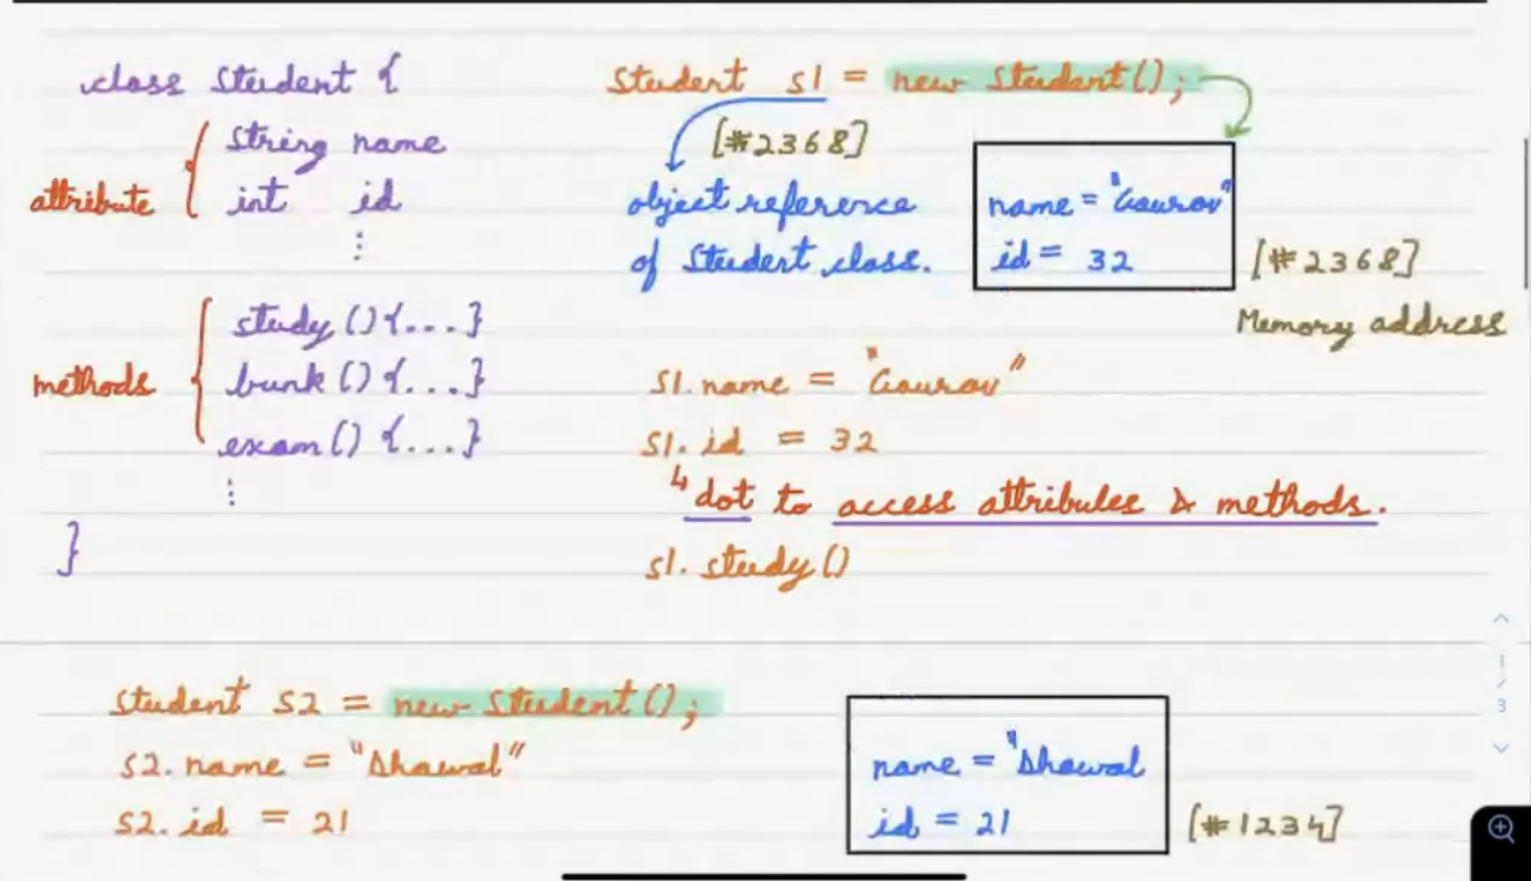 class Student {
attribute
String name
int id
⋮
methods
study () {...}
bunk () {...}
exam () {...}
⋮
}
Student s1 = new Student();
[#2368]
object reference
of Student class.
name = "Gaurav"
id = 32
[#2368]
Memory address
s1.name = "Gaurav"
s1.id = 32
↳ dot to access attributes & methods.
s1.study()
Student s2 = new Student();
s2.name = "Dhawal"
s2.id = 21
name = "Dhawal
id = 21
[#1234]
1
/
3